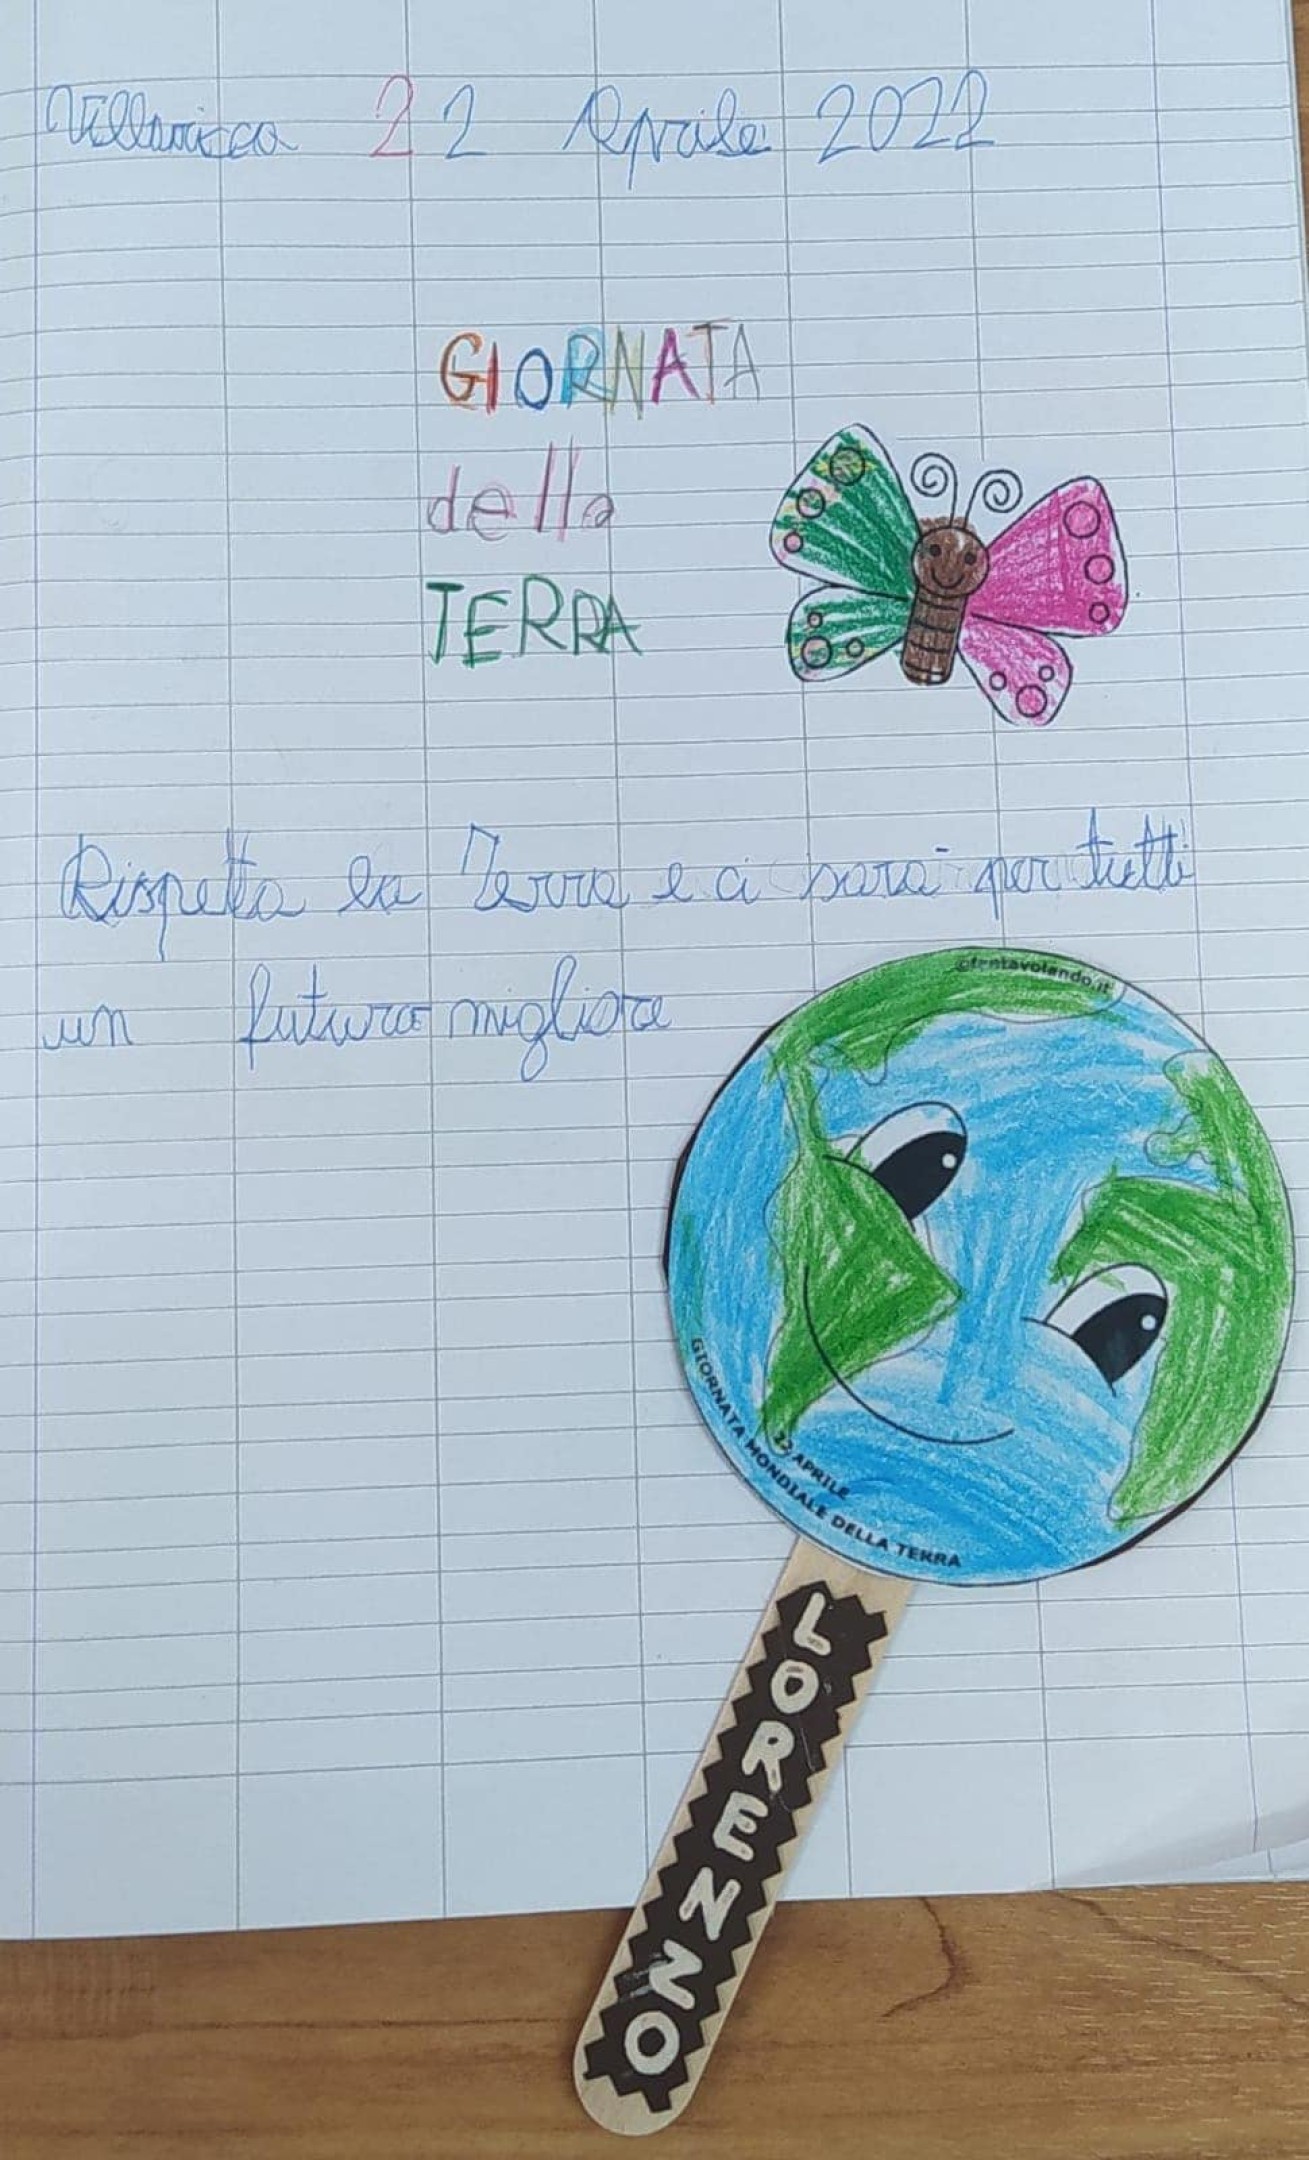 Villaricca 22 Aprile 2022
GIORNATA
della
TERRA
Rispetta la Terra e ci sarà per tutti
un futuro migliore
©fantavolando.it
22 APRILE
GIORNATA MONDIALE DELLA TERRA
LORENZO